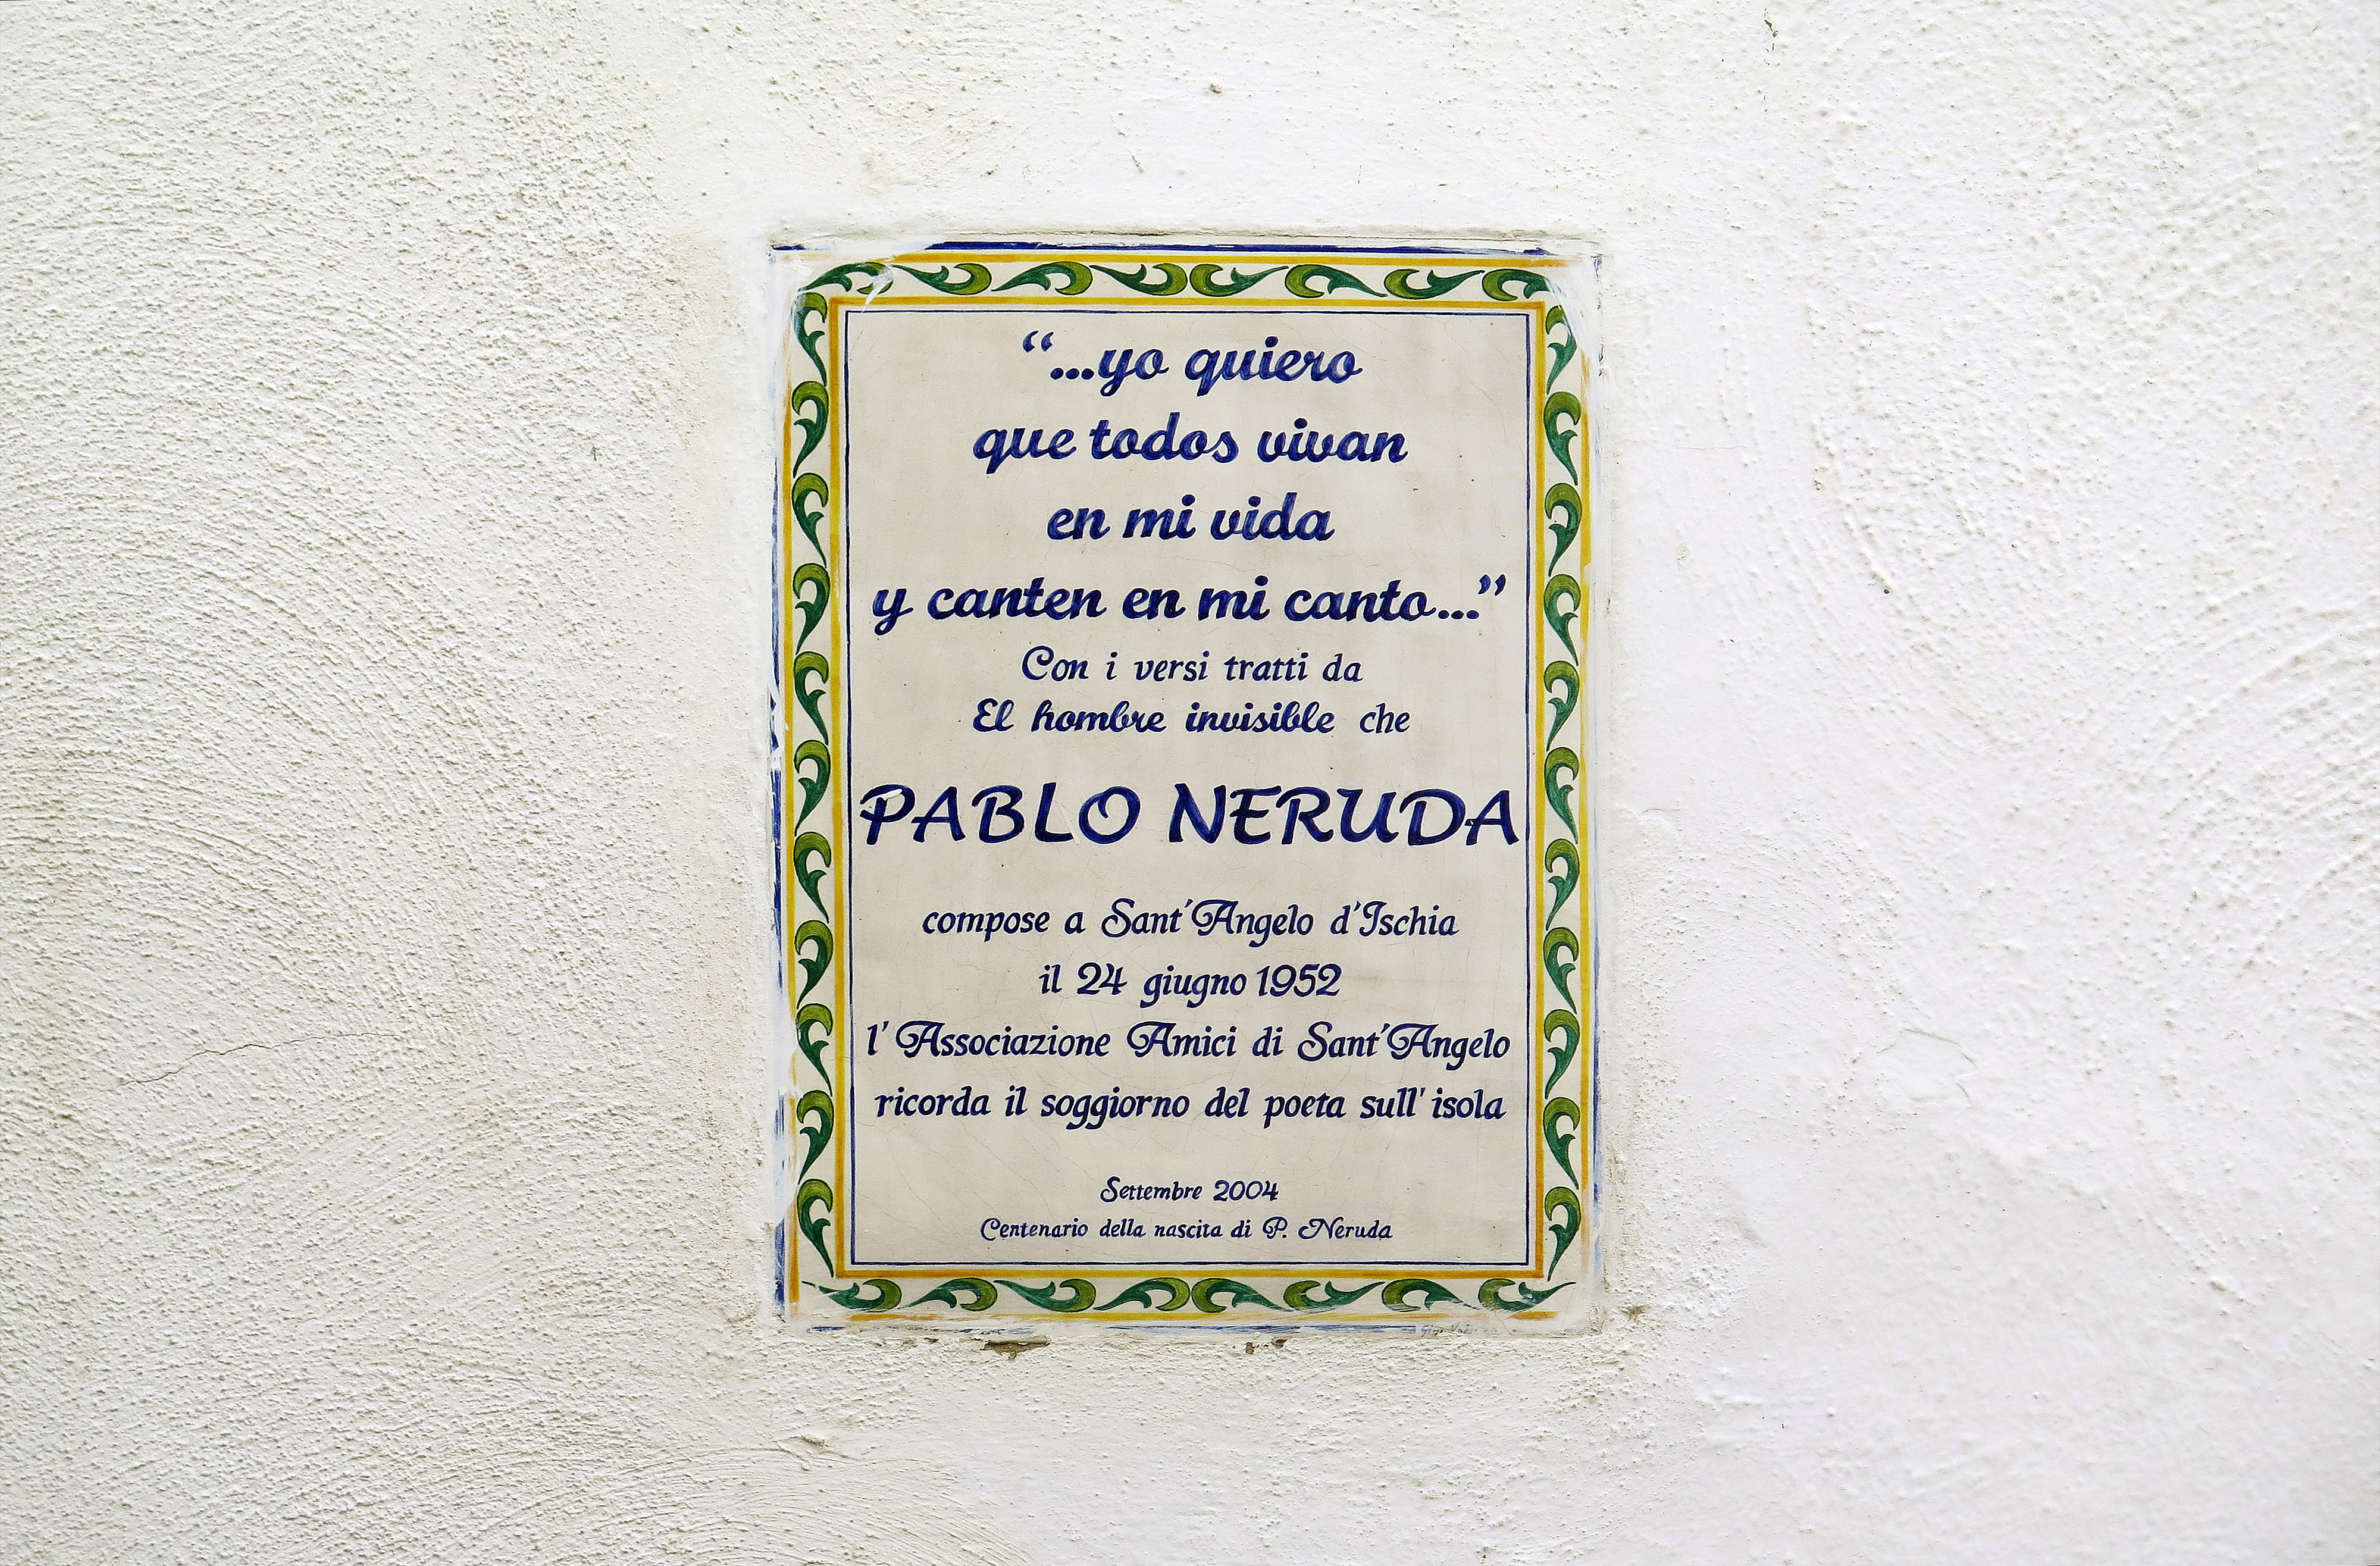 “...yo quiero
que todos vivan
en mi vida
y canten en mi canto...”
Con i versi tratti da
El hombre invisible che
PABLO NERUDA
compose a Sant'Angelo d'Ischia
il 24 giugno 1952
l'Associazione Amici di Sant'Angelo
ricorda il soggiorno del poeta sull'isola
Settembre 2004
Centenario della nascita di P. Neruda